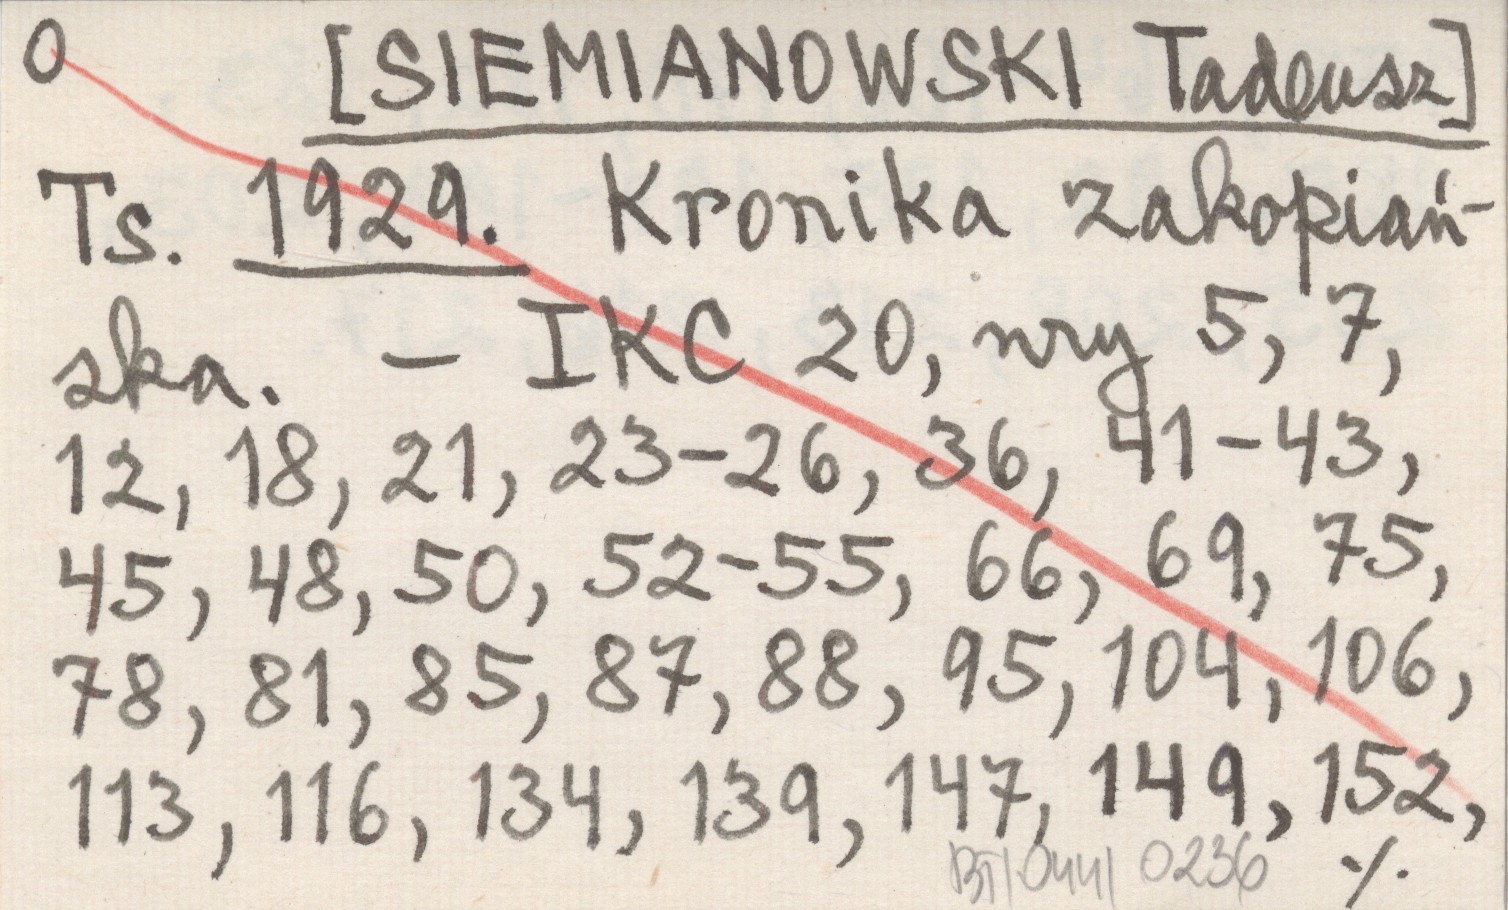 O [SIEMIANOWSKI Tadeusz]
Ts. 1929. Kronika zakopiań-
ska. – IKC 20, nry 5, 7,
12, 18, 21, 23–26, 36, 41–43,
45, 48, 50, 52–55, 66, 69, 75,
78, 81, 85, 87, 88, 95, 104, 106,
113, 116, 134, 139, 147, 149, 152,
BT/044/ 0236 ·/.